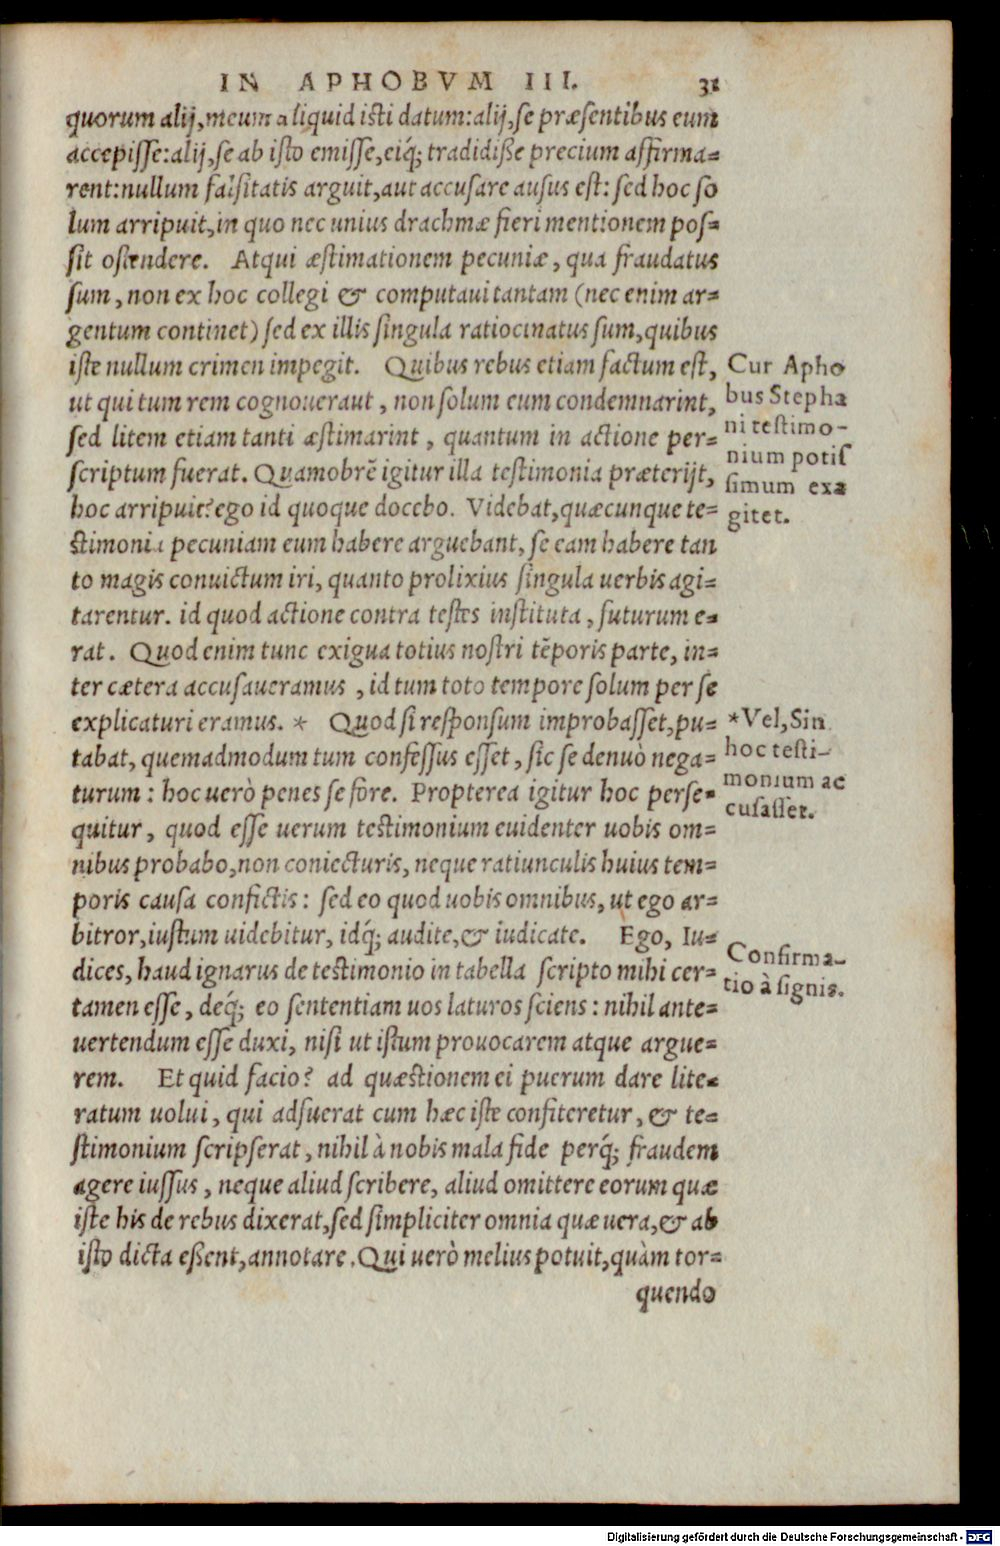 IN APHOBVM III. 31
quorum alij, meum aliquid isti datum: alij, se præsentibus eum
accepisse: alij, se ab isto emisse, eiq́; tradidiße precium affirma=
rent: nullum falsitatis arguit, aut accusare ausus est: sed hoc so
lum arripuit, in quo nec unius drachmæ fieri mentionem pos=
sit ostendere. Atqui æstimationem pecuniæ, qua fraudatus
sum, non ex hoc collegi & computaui tantam (nec enim ar=
gentum continet) sed ex illis singula ratiocinatus sum, quibus
iste nullum crimen impegit. Quibus rebus etiam factum est,
ut qui tum rem cognouerant, non solum eum condemnarint,
sed litem etiam tanti æstimarint, quantum in actione per=
scriptum fuerat. Quamobrē igitur illa testimonia præterijt,
hoc arripuit? ego id quoque docebo. Videbat, quæcunque te=
stimonia pecuniam eum habere arguebant, se eam habere tan
to magis conuictum iri, quanto prolixius singula uerbis agi=
tarentur. id quod actione contra testes instituta, futurum e=
rat. Quod enim tunc exigua totius nostri tēporis parte, in=
ter cætera accusaueramus, id tum toto tempore solum per se
explicaturi eramus. * Quod si responsum improbasset, pu=
tabat, quemadmodum tum confessus esset, sic se denuò nega=
turum: hoc uerò penes se fore. Propterea igitur hoc perse=
quitur, quod esse uerum testimonium euidenter uobis om=
nibus probabo, non coniecturis, neque ratiunculis huius tem=
poris causa confictis: sed eo quod uobis omnibus, ut ego ar=
bitror, iustum uidebitur, idq́; audite, & iudicate. Ego, Iu=
dices, haud ignarus de testimonio in tabella scripto mihi cer=
tamen esse, deq́; eo sententiam uos laturos sciens: nihil ante=
uertendum esse duxi, nisi ut istum prouocarem atque argue=
rem. Et quid facio? ad quæstionem ei puerum dare lite=
ratum uolui, qui adfuerat cum hæc iste confiteretur, & te=
stimonium scripserat, nihil à nobis mala fide perq́; fraudem
agere iussus, neque aliud scribere, aliud omittere eorum quæ
iste his de rebus dixerat, sed simpliciter omnia quæ uera, & ab
isto dicta eßent, annotare. Qui uerò melius potuit, quàm tor=
quendo
Cur Apho
bus Stepha
ni testimo-
nium potis
simum exa
gitet.
*Vel, Sin
hoc testi-
monium ac
cusasset.
Confirma-
tio à signis.
Digitalisierung gefördert durch die Deutsche Forschungsgemeinschaft - DFG